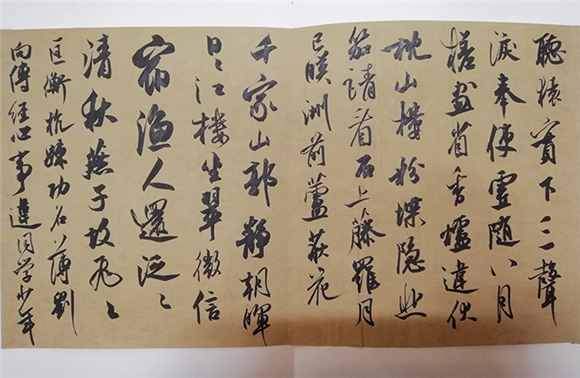 聽猿實下三聲
淚奉使虛隨八月
槎畫省香爐違伏
枕山樓粉堞隱悲
笳請看石上藤蘿月
已暎洲前蘆荻花
千家山郭靜朝暉
日〻江樓坐翠微信
宿漁人還泛〻
清秋燕子故飛〻
匡衡抗疏功名薄劉
向傳經心事違同學少年